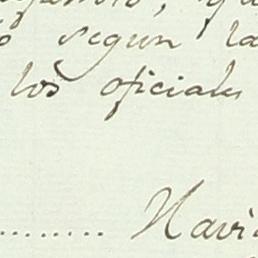 ó según la
los oficiales
Navi